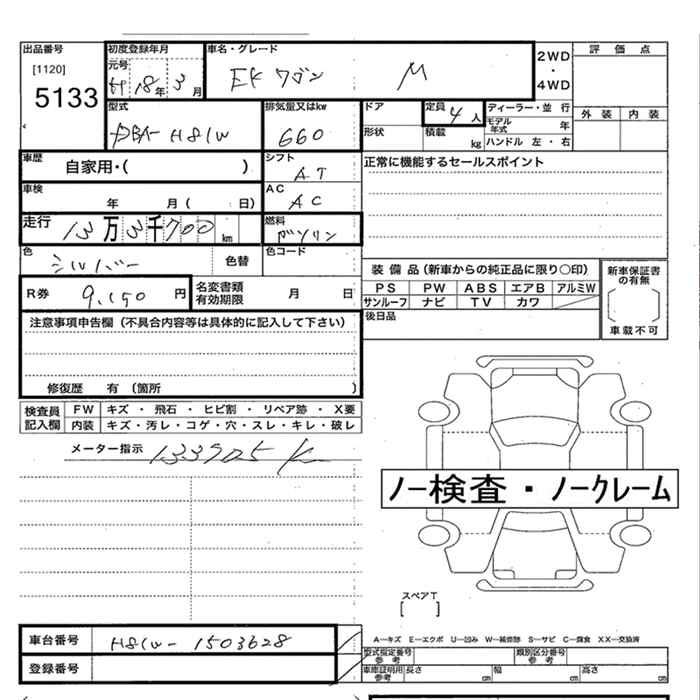 出品番号
[1120]
5133
初度登録年月
元号
H 18年 3月
車名・グレード
EKワゴン M
2WD
・
4WD
評価点
外装 内装
型式
DBA-H81W
排気量又はkw
660
ドア
形状
定員
4人
積載
kg
ディーラー・並行
モデル年式 年
ハンドル 左・右
車歴
自家用・( )
シフト
AT
正常に機能するセールスポイント
車検
年 月( 日)
AC
AC
走行
13万3千700km
燃料
ガソリン
色
シルバー
色替
色コード
R券
9,190円
名変書類有効期限
月 日
装備品(新車からの純正品に限り○印)
PS PW ABS エアB アルミW
サンルーフ ナビ TV カワ
後日品
新車保証書の有無
車載不可
注意事項申告欄(不具合内容等は具体的に記入して下さい)
修復歴 有(箇所 )
検査員記入欄
FW キズ・飛石・ヒビ割・リペア跡・X要
内装 キズ・汚レ・コゲ・穴・スレ・キレ・破レ
メーター指示
ノー検査・ノークレーム
スペアT
[ ]
車台番号
H81W-1503628
登録番号
A―キズ E―エクボ U―凹み W―補修跡 S―サビ C―腐食 XX―交換済
型式指定番号
参考
類別区分番号
参考
車庫証明用
参考
長さ cm 幅 cm 高さ cm